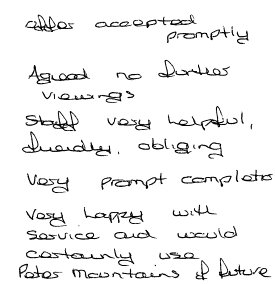 offer accepted
promptly
Agreed no further
viewings
Staff very helpful,
friendly, obliging
Very prompt completion
Very happy with
service and would
certainly use
Peter Mountains if future